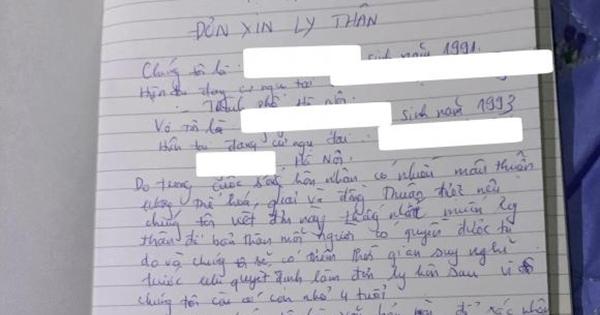 ĐƠN XIN LY THÂN
Chúng tôi là : sinh năm 1991.
Hiện đang cư ngụ tại
- Thành phố Hà Nội.
Vợ tôi là sinh năm 1993
Hiện tại đang cư ngụ tại :
Hà Nội.
Do trong cuộc sống hôn nhân có nhiều mâu thuẫn
và đồng thuận
chúng tôi viết đơn này thống nhất muốn ly
thân để bản thân mỗi người có quyền được tự
do và chúng tôi sẽ có thêm thời gian suy nghĩ
trước khi quyết định làm đơn ly hôn sau vì
chúng tôi còn có con nhỏ 4 tuổi.